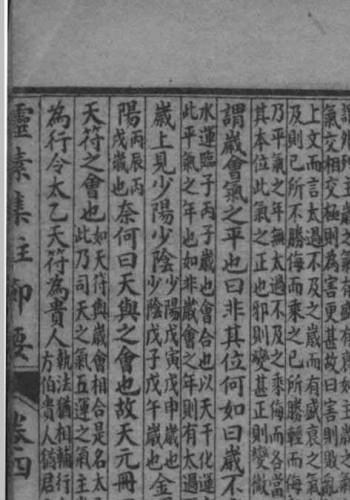 氣交相交極則為害更甚故曰害則敗亂
上文而言太過不及之歲而有盛衰之氣
及則已所不勝侮而乘之已所勝輕而侮
乃平氣之年無太過不及之乘侮而各當
其本位此氣之正也邪則變甚正則變微
謂歲會氣之平也曰非其位何如曰歲不
水運臨子丙子歲也會合也以天干化運
此平氣之年也如非歲會之年則有太過
歲上見少陽少陰少陽戊寅戊申歲也少陰戊子戊午歲也金
陽丙辰丙戌歲也奈何曰天與之會也故天元冊
天符之會也如天符與歲會相合是名太此乃司天之氣五運之氣主
為行令太乙天符為貴人執法猶相輔行方伯貴人猶君
靈素集註節要 卷四